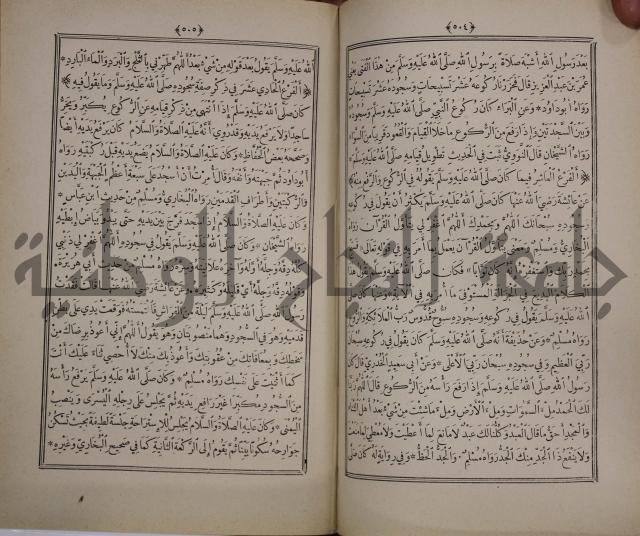 ﴿٥٠٤﴾
بعد رسول الله أشبه صلاة برسول الله صلى الله عليه وسلم من هذا الفتى يعني
عمر بن عبد العزيز قال فحزرنا ركوعه عشر تسبيحات وسجوده عشر تسبيحات
رواه أبو داود * وعن البراء كان ركوع النبي صلى الله عليه وسلم وسجوده
وبين السجدتين وإذا رفع من الركوع ما خلا القيام والقعود قريبا من السواء
رواه الشيخان قال النووي ثبت في الحديث تطويل قيامه صلى الله عليه وسلم
﴿الفرع العاشر فيما كان صلى الله عليه وسلم يقوله في الركوع والرفع منه﴾
عن عائشة رضي الله عنها كان صلى الله عليه وسلم يكثر أن يقول في ركوعه
وسجوده سبحانك اللهم وبحمدك اللهم اغفر لي يتأول القرآن رواه
البخاري ومسلم * ومعنى يتأول القرآن يعمل بما أمر به في قوله تعالى فسبح
بحمد ربك واستغفره إنه كان توابا * فكان صلى الله عليه وسلم يقول هذا
الكلام البديع في الجزالة المستوفي ما أمر به في الآية * وعنها كان
صلى الله عليه وسلم يقول في ركوعه وسجوده سبوح قدوس رب الملائكة والروح
رواه مسلم * وعن حذيفة أنه صلى الله عليه وسلم كان يقول في ركوعه سبحان
ربي العظيم وفي سجوده سبحان ربي الأعلى * وعن أبي سعيد الخدري قال كان
رسول الله صلى الله عليه وسلم إذا رفع رأسه من الركوع قال اللهم ربنا
لك الحمد ملء السموات وملء الأرض وملء ما شئت من شيء بعد أهل الثناء
والمجد أحق ما قال العبد وكلنا لك عبد لا مانع لما أعطيت ولا معطي لما منعت
ولا ينفع ذا الجد منك الجد رواه مسلم * والجد الحظ * وفي رواية له كان صلى
﴿٥٠٥﴾
الله عليه وسلم يقول بعد قوله من شيء بعد اللهم طهرني بالثلج والبرد والماء البارد *
﴿الفرع الحادي عشر في ذكر صفة سجوده صلى الله عليه وسلم وما يقول فيه﴾
كان صلى الله عليه وسلم إذا انتهى من ذكر قيامه عن الركوع يكبر ويخر
ساجدا ولا يرفع يديه وقد روي أنه عليه الصلاة والسلام كان يرفع يديه أيضا
وصححه بعض الحفاظ * وكان عليه الصلاة والسلام يضع يديه قبل ركبتيه رواه
أبو داود ثم جبهته وأنفه وقال أمرت أن أسجد على سبعة أعظم الجبهة واليدين
والركبتين وأطراف القدمين رواه البخاري ومسلم من حديث ابن عباس *
وكان عليه الصلاة والسلام إذا سجد فرج بين يديه حتى يبدو بياض إبطيه
رواه الشيخان * وكان صلى الله عليه وسلم يقول في سجوده اللهم اغفر لي ذنبي
كله دقه وجله أوله وآخره علانيته وسره رواه مسلم من حديث أبي هريرة *
وقوله دقه وجله أي قليله وكثيره * وعن عائشة رضي الله عنها قالت فقدت
رسول الله صلى الله عليه وسلم ليلة من الفراش فالتمسته فوقعت يدي على بطن
قدميه وهو في السجود وهما منصوبتان وهو يقول اللهم إني أعوذ برضاك من
سخطك وبمعافاتك من عقوبتك وأعوذ بك منك لا أحصي ثناء عليك أنت
كما أثنيت على نفسك رواه مسلم * وكان صلى الله عليه وسلم يرفع رأسه
من السجود مكبرا غير رافع يديه ثم يجلس على رجله اليسرى وينصب
اليمنى * وكان عليه الصلاة والسلام يجلس للاستراحة جلسة لطيفة بحيث تسكن
جوارحه سكونا بينا ثم يقوم إلى الركعة الثانية كما في صحيح البخاري وغيره *
جامعة النجاح الوطنية